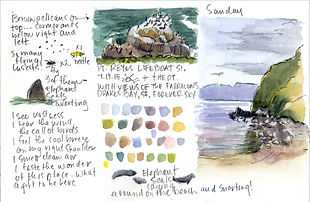 Brown pelicans on
top... cormorants
below right and
left.
So many
flying
insects!
x1
x2
elephant
seals
snorting
I see vastness
hear the wind,
the call of birds
I feel the cool breeze
on my right shoulder
I smell clean air
I taste the wonder
of this place. What
a gift to be here
PT. REYES LIFEBOAT ST.
7.19.15 + THE PT.
WITH VIEWS OF THE FARALLONS,
DRAKES BAY, SF, FOREVER SKY
Elephant
Seals
laying
around on the beach and snorting!
Sunday